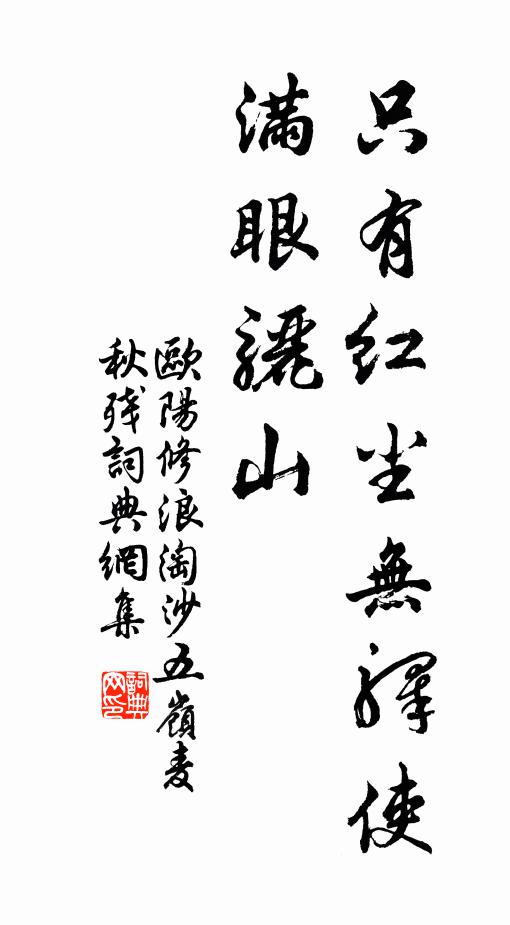 只有红尘無驛使
滿眼驪山
歐陽修浪淘沙五嶺麦
秋残詞典網集
詞典
网印